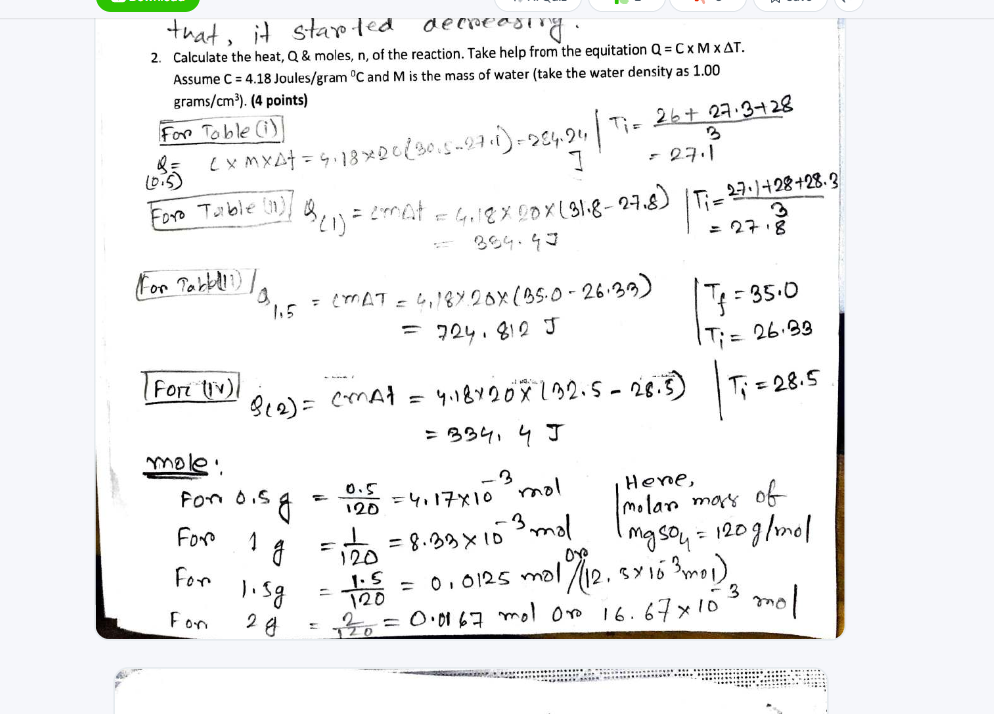 that, it started decreasing.
2. Calculate the heat, Q & moles, n, of the reaction. Take help from the equitation Q = C x M x ΔT.
Assume C = 4.18 Joules/gram ⁰C and M is the mass of water (take the water density as 1.00
grams/cm³). (4 points)
For Table (i)
Q(0.5) = C x m x Δt = 4.18 x 20 (30.5 - 27.1) = 284.24 J | Ti = 26 + 27.3 + 28 / 3
= 27.1
For Table (ii) Q(1) = cmΔt = 4.18 x 20 x (31.8 - 27.8) | Ti = 27.1 + 28 + 28.3 / 3
= 334.4 J = 27.8
For Table (iii) / Q1.5 = cmΔT = 4.18 x 20 x (35.0 - 26.33) | Tf = 35.0
= 724.812 J | Ti = 26.33
For (iv) Q(2) = cmΔt = 4.18 x 20 x (32.5 - 28.5) | Ti = 28.5
= 334.4 J
mole:
For 0.5 g = 0.5/120 = 4.17 x 10⁻³ mol | Here,
For 1 g = 1/120 = 8.33 x 10⁻³ mol | molar mass of
MgSO₄ = 120 g/mol
For 1.5g = 1.5/120 = 0.0125 mol or (12.5 x 10⁻³ mol)
For 2 g = 2/120 = 0.0167 mol or 16.67 x 10⁻³ mol